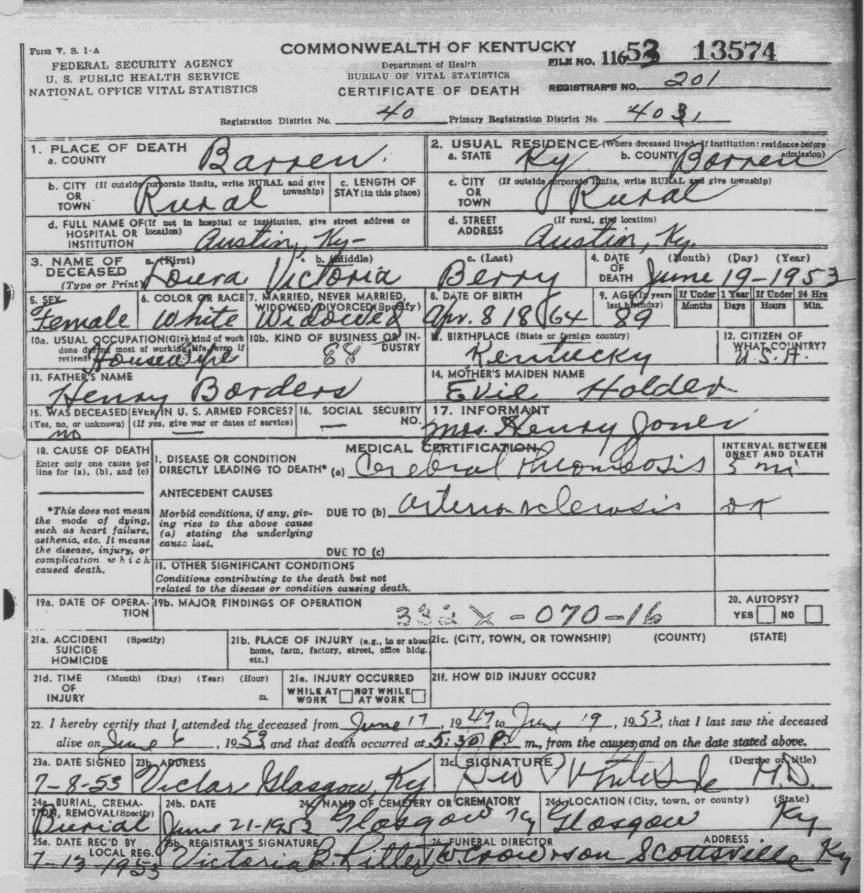 Form V. S. 1-A
COMMONWEALTH OF KENTUCKY
FEDERAL SECURITY AGENCY
U. S. PUBLIC HEALTH SERVICE
NATIONAL OFFICE VITAL STATISTICS
Department of Health
BUREAU OF VITAL STATISTICS
CERTIFICATE OF DEATH
FILE NO. 116 53 13574
REGISTRAR'S NO. 201
Registration District No. 40 Primary Registration District No. 4031
1. PLACE OF DEATH
a. COUNTY Barren
2. USUAL RESIDENCE (Where deceased lived, if institution: residence before admission)
a. STATE Ky b. COUNTY Barren
b. CITY (If outside corporate limits, write RURAL and give township) OR TOWN Rural
c. LENGTH OF STAY (in this place)
c. CITY (If outside corporate limits, write RURAL and give township) OR TOWN Rural
d. FULL NAME OF (If not in hospital or institution, give street address or location) HOSPITAL OR INSTITUTION Austin, Ky-
d. STREET ADDRESS (If rural, give location) Austin, Ky.
3. NAME OF DECEASED (Type or Print) a. (First) Loura b. (Middle) Victoria c. (Last) Berry
4. DATE OF DEATH (Month) (Day) (Year) June 19-1953
5. SEX Female
6. COLOR OR RACE White
7. MARRIED, NEVER MARRIED, WIDOWED, DIVORCED (Specify) Widowed
8. DATE OF BIRTH Apr. 8 1864
9. AGE (In years last birthday) 89
If Under 1 Year Months Days If Under 24 Hrs Hours Min.
10a. USUAL OCCUPATION (Give kind of work done during most of working life, even if retired) Housewife
10b. KIND OF BUSINESS OR INDUSTRY
11. BIRTHPLACE (State or foreign country) Kentucky
12. CITIZEN OF WHAT COUNTRY? U.S.A.
13. FATHER'S NAME Henry Borders
14. MOTHER'S MAIDEN NAME Evie Holder
15. WAS DECEASED EVER IN U. S. ARMED FORCES? (Yes, no, or unknown) (If yes, give war or dates of service) no —
16. SOCIAL SECURITY NO. —
17. INFORMANT Mrs. Henry Jones
18. CAUSE OF DEATH
Enter only one cause per line for (a), (b), and (c)
*This does not mean the mode of dying, such as heart failure, asthenia, etc. It means the disease, injury, or complication which caused death.
MEDICAL CERTIFICATION
INTERVAL BETWEEN ONSET AND DEATH
I. DISEASE OR CONDITION DIRECTLY LEADING TO DEATH* (a) Cerebral Thrombosis 5 mi
ANTECEDENT CAUSES
Morbid conditions, if any, giving rise to the above cause (a) stating the underlying cause last.
DUE TO (b) arteriosclerosis
DUE TO (c)
II. OTHER SIGNIFICANT CONDITIONS
Conditions contributing to the death but not related to the disease or condition causing death.
19a. DATE OF OPERATION
19b. MAJOR FINDINGS OF OPERATION
332 X - 070-16
20. AUTOPSY? YES NO
21a. ACCIDENT SUICIDE HOMICIDE (Specify)
21b. PLACE OF INJURY (e.g., in or about home, farm, factory, street, office bldg. etc.)
21c. (CITY, TOWN, OR TOWNSHIP) (COUNTY) (STATE)
21d. TIME OF INJURY (Month) (Day) (Year) (Hour) m.
21e. INJURY OCCURRED WHILE AT WORK NOT WHILE AT WORK
21f. HOW DID INJURY OCCUR?
22. I hereby certify that I attended the deceased from June 17, 1947 to June 19, 1953, that I last saw the deceased
alive on June 6, 1953 and that death occurred at 5:30 P. m., from the causes and on the date stated above.
23a. DATE SIGNED 7-8-53
23b. ADDRESS Glasgow, Ky
23c. SIGNATURE (Degree or title) M.D.
24a. BURIAL, CREMATION, REMOVAL (Specify) Burial
24b. DATE June 21-1953
24c. NAME OF CEMETERY OR CREMATORY Glasgow Ky
24d. LOCATION (City, town, or county) (State) Glasgow Ky
25a. DATE REC'D BY LOCAL REG. 7-13-1953
25b. REGISTRAR'S SIGNATURE Victoria B.
26. FUNERAL DIRECTOR ADDRESS Scottsville Ky